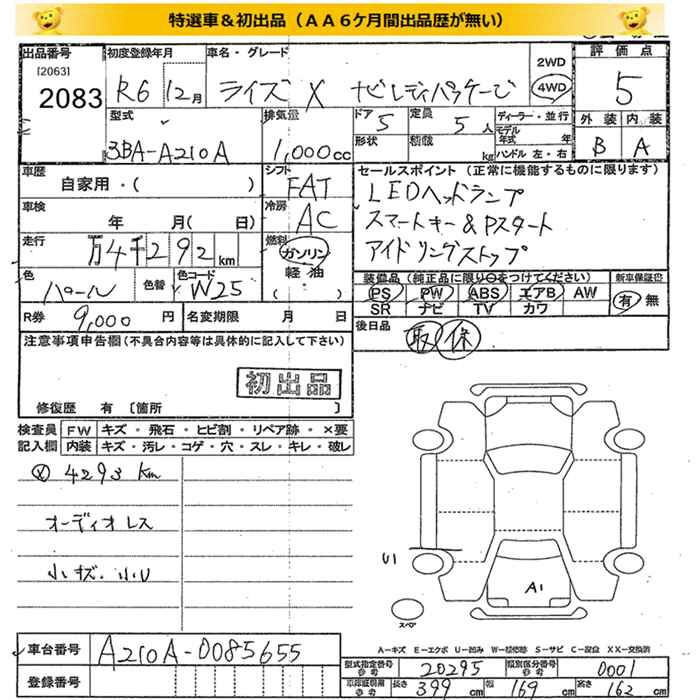 特選車＆初出品（ＡＡ６ケ月間出品歴が無い）
出品番号 初度登録年月 車名・グレード 2WD 評価点
[2063]
2083 R6 12月 ライズ X ゼロレディパッケージ 4WD 5
型式 排気量 ドア 5 定員 5人 ディーラー・並行 外装 内装
3BA-A210A 1,000cc 形状 積載 kg モデル年式 年 B A
ハンドル 左・右
車歴 シフト セールスポイント（正常に機能するものに限ります）
自家用・( ) FAT LEDヘッドランプ
車検 冷房 スマートキー&Pスタート
年 月( 日) AC アイドリングストップ
走行 燃料
万4千292km ガソリン
軽油 装備品（純正品に限り○をつけてください） 新車保証書
色 色替 色コード ( ・ ) PS PW ABS エアB AW 有 無
パール W25 SR ナビ TV カワ
R券 9,000円 名変期限 月 日 後日品 取 保
注意事項申告欄（不具合内容等は具体的に記入して下さい）
初出品
修復歴 有 〔箇所 〕
検査員 FW キズ・飛石・ヒビ割・リペア跡・×要
記入欄 内装 キズ・汚レ・コゲ・穴・スレ・キレ・破レ
4293 Km
オーディオレス
小キズ.小U
U1
A1
スペア
A－キズ E－エクボ U－凹み W－補修跡 S－サビ C－腐食 XX－交換済
車台番号 A210A-0085655
型式指定番号 参考 20295 類別区分番号 参考 0001
登録番号 車庫証明用 参考 長さ 399 cm 巾 169 cm 高さ 162 cm